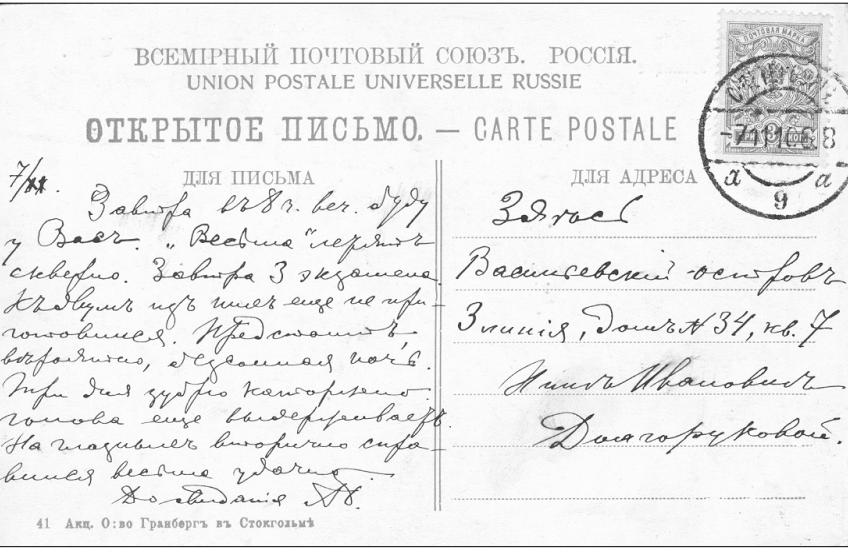 ВСЕМІРНЫЙ ПОЧТОВЫЙ СОЮЗЪ. РОССІЯ.
UNION POSTALE UNIVERSELLE RUSSIE
ОТКРЫТОЕ ПИСЬМО. — CARTE POSTALE
ПОЧТОВАЯ МАРКА
9
ДЛЯ ПИСЬМА
Завтра въ 8 ч. веч. буду
у Васъ. „Весьма"
скверно. Завтра 3 экзамена.
Къ двумъ изъ нихъ еще не при-
готовился. Предстоитъ,
вѣроятно, безсонная ночь.
Три дня зубрю каторжно.
голова еще выдерживаетъ.
На вторично спра-
вился весьма удачно.
До свиданія
ДЛЯ АДРЕСА
Здѣсь
Васильевскій островъ
3 линія, домъ № 34, кв. 7
Нинѣ Ивановнѣ
Долгоруковой.
41 Акц. О:во Гранбергъ въ Стокгольмѣ